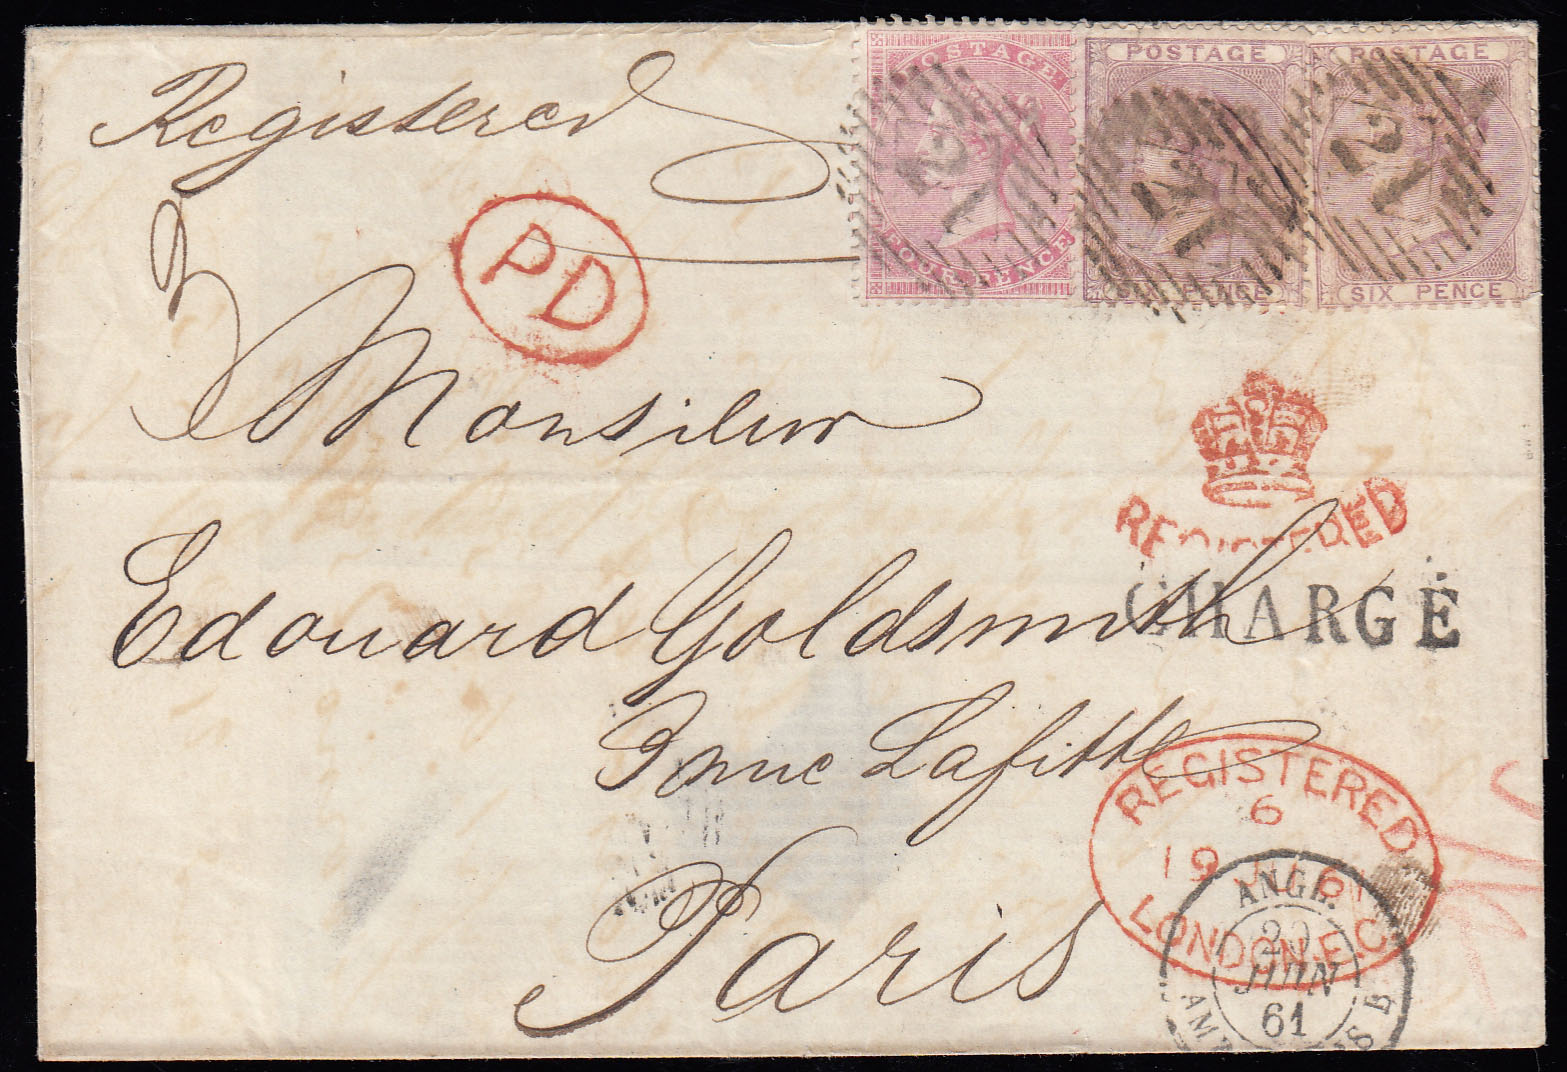 Registered
POSTAGE
FOUR PENCE
POSTAGE
SIX PENCE
POSTAGE
SIX PENCE
12
12
12
PD
Monsieur
REGISTERED
CHARGÉ
Edouard Goldsmith
3 rue Lafitte
Paris
REGISTERED
6
19 JU 61
LONDON.E.C.
ANGL.
20
JUIN
61